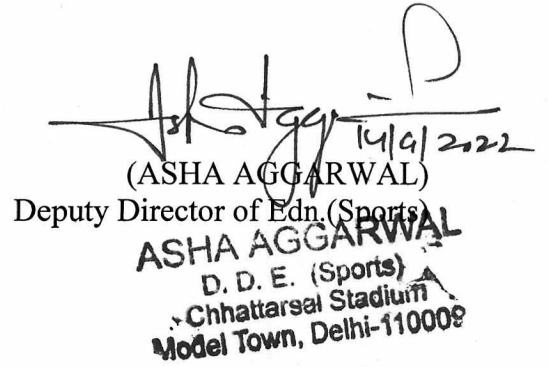 Asha Aggarwal
14/9/2022
(ASHA AGGARWAL)
Deputy Director of Edn.(Sports)
ASHA AGGARWAL
D. D. E. (Sports)
Chhattarsal Stadium
Model Town, Delhi-110009